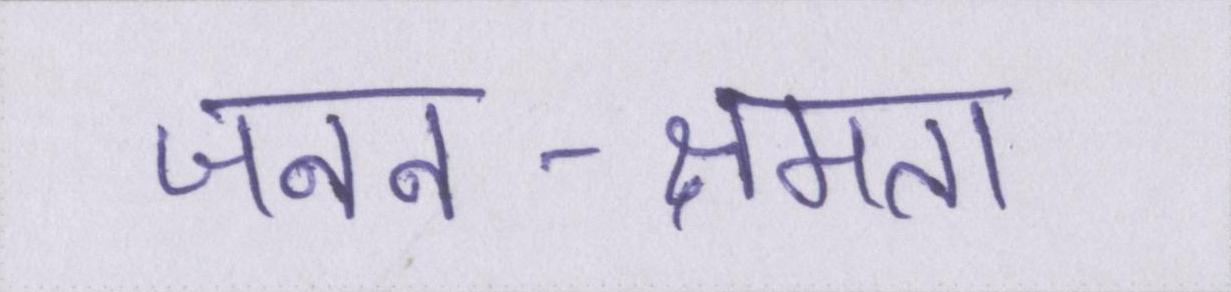 जनन-क्षमता